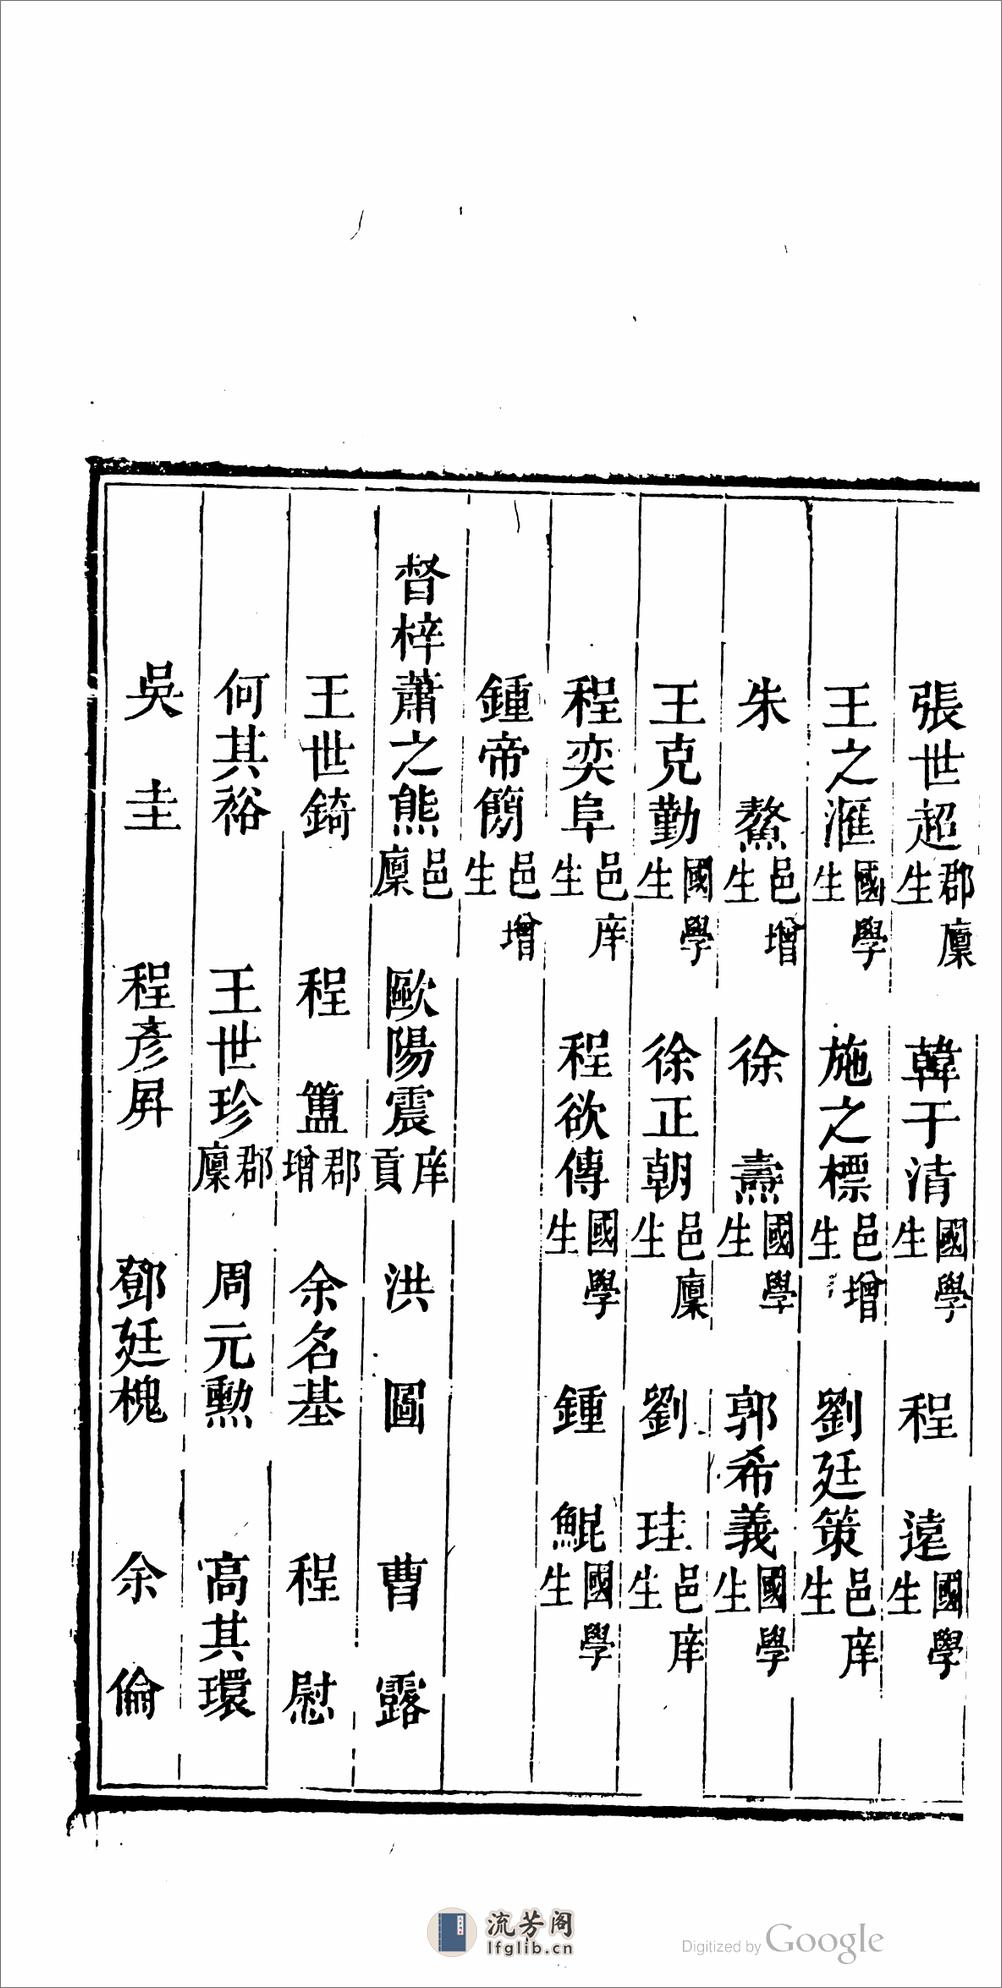 張世超郡廩生　韓于清國學生　程遠國學生
王之滙國學生　施之標邑增生　劉廷策邑庠生
朱鰲邑增生　徐燾國學生　郭希義國學生
王克勤國學生　徐正朝邑廩生　劉珪邑庠生
程奕阜邑庠生　程欲傳國學生　鍾鯤國學生
鍾帝簡邑增生
督梓蕭之熊邑廩　歐陽震庠貢　洪圖　曹露
王世錡　程簠郡增　余名基　程慰
何其裕　王世珍郡廩　周元勲　高其環
吳圭　程彥屏　鄧廷槐　余倫
流芳阁
lfglib.cn
Digitized by Google